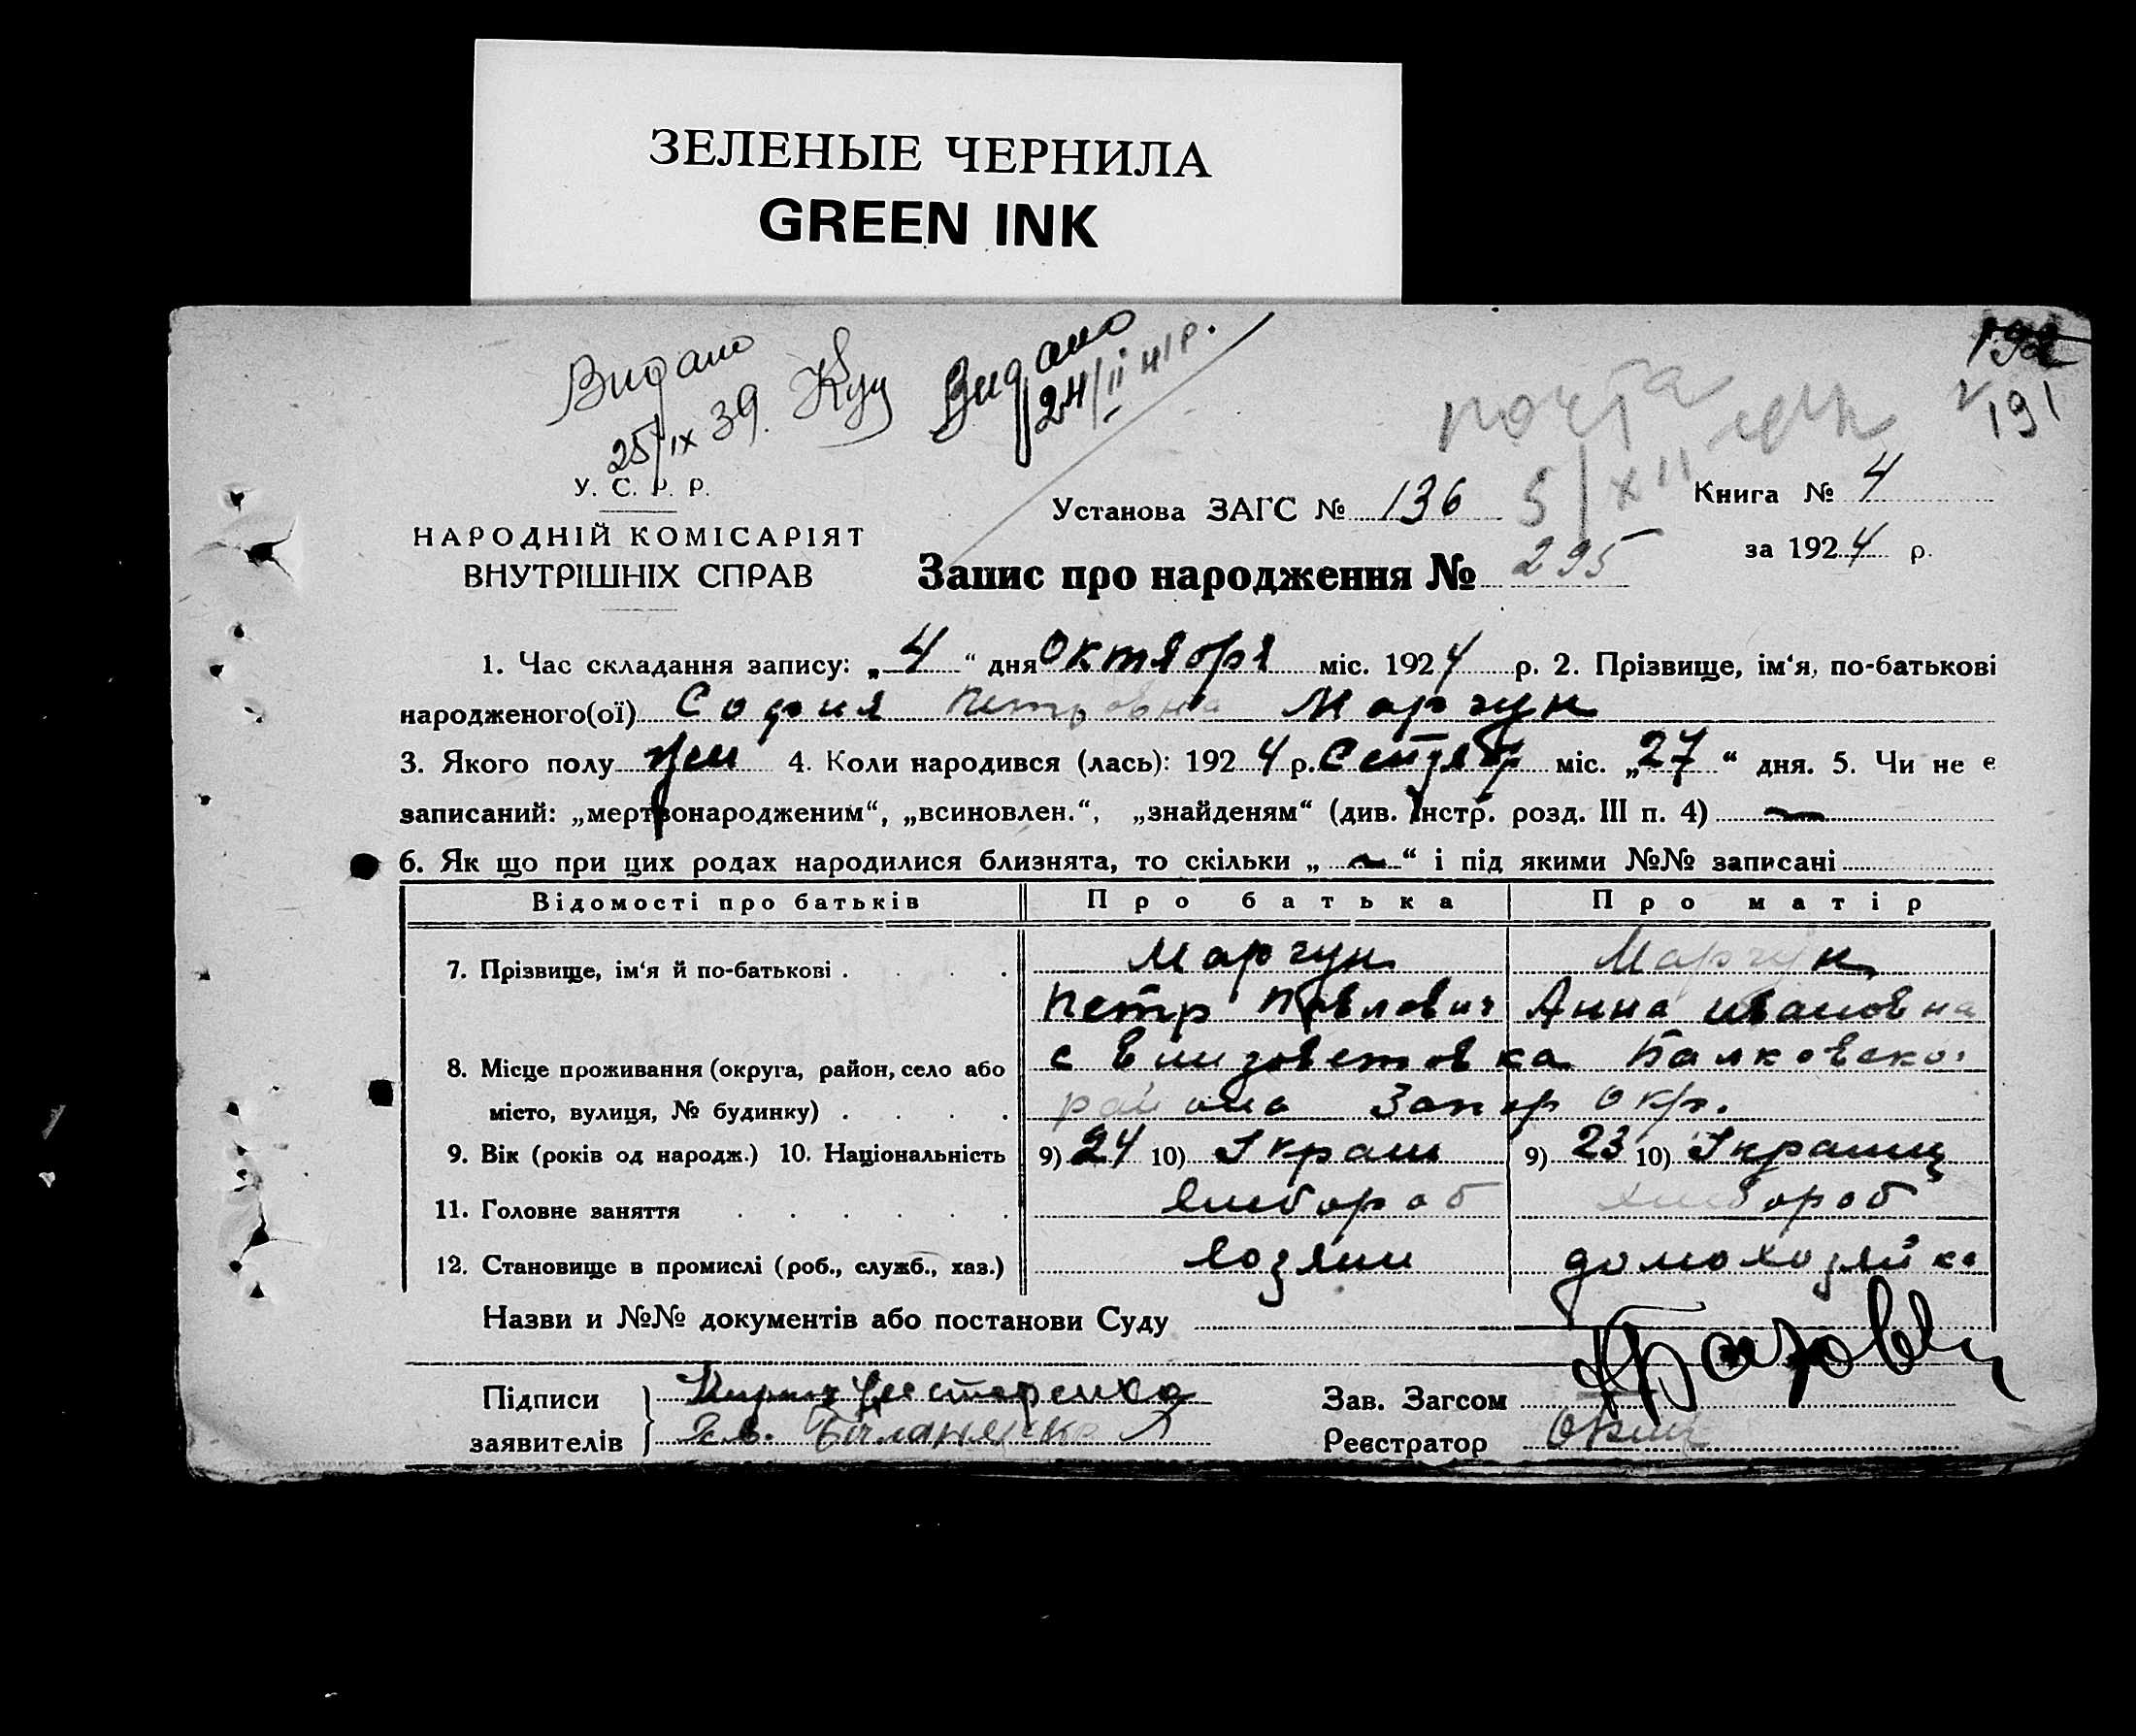 ЗЕЛЕНЫЕ ЧЕРНИЛА
GREEN INK
192
Видано
25/IX 39.
Видано
24/II 41р.
почта
191
У. С. Р. Р.
НАРОДНІЙ КОМІСАРІЯТ
ВНУТРІШНІХ СПРАВ
Установа ЗАГС № 136
5/XII
Книга № 4
за 1924 р.
Запис про народження № 295
1. Час складання запису: „4“ дня Октября міс. 1924 р. 2. Прізвище, ім‘я, по-батькові
народженого(ої) София Петровна Марчун
3. Якого полу жен 4. Коли народився (лась): 1924 р. Сентябр міс. „27“ дня. 5. Чи не є
записаний: „мертвонародженим“, „всиновлен.“, „знайденям“ (див. Інстр. розд. III п. 4) —
6. Як що при цих родах народилися близнята, то скільки „—“ і під якими №№ записані
Відомості про батьків Про батька Про матір
7. Прізвище, ім‘я й по-батькові . . . . Марчун Марчун
Петр Павлович Анна Ивановна
8. Місце проживання (округа, район, село або с Елизоветовка Балковско
місто, вулиця, № будинку) . . . . района Запор окр.
9. Вік (років од народж.) 10. Національність 9) 24 10) Украин 9) 23 10) Украинц
11. Головне заняття . . . . . . Хлибороб хлибороб
12. Становище в промислі (роб., служб., хаз.) хозяин домохозяйка
Назви и №№ документів або постанови Суду
Підписи Нестеренко
заявителів
Зав. Загсом
Реєстратор